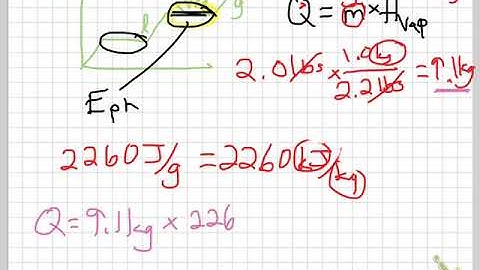 l g
Q = m × Hvap
2.0 lbs × 1.0 kg / 2.2 lbs = 9.1 kg
Eph
2260 J/g = 2260 kJ/kg
Q = 9.1 kg × 226